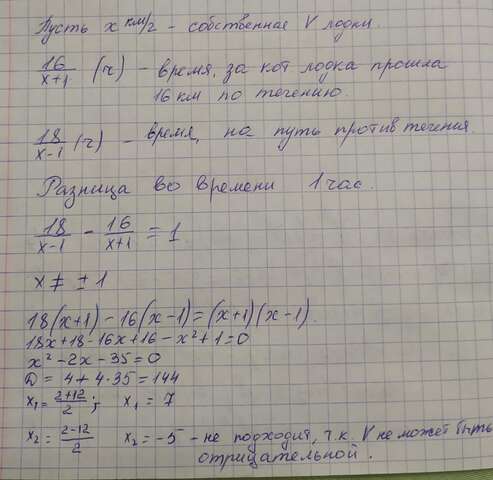 Пусть x км/ч - собственная V лодки.
16/x+1 (ч) - время, за кот лодка прошла
16 км по течению.
18/x-1 (ч) - время, на путь против течения.
Разница во времени 1 час.
18/x-1 - 16/x+1 = 1
x ≠ ± 1
18(x+1) - 16(x-1) = (x+1)(x-1).
18x+18-16x+16-x²+1=0
x²-2x-35=0
D = 4+4·35=144
x₁ = 2+12/2 ; x₁ = 7
x₂ = 2-12/2 x₂ = -5 - не подходит, т.к. V не может быть
отрицательной.